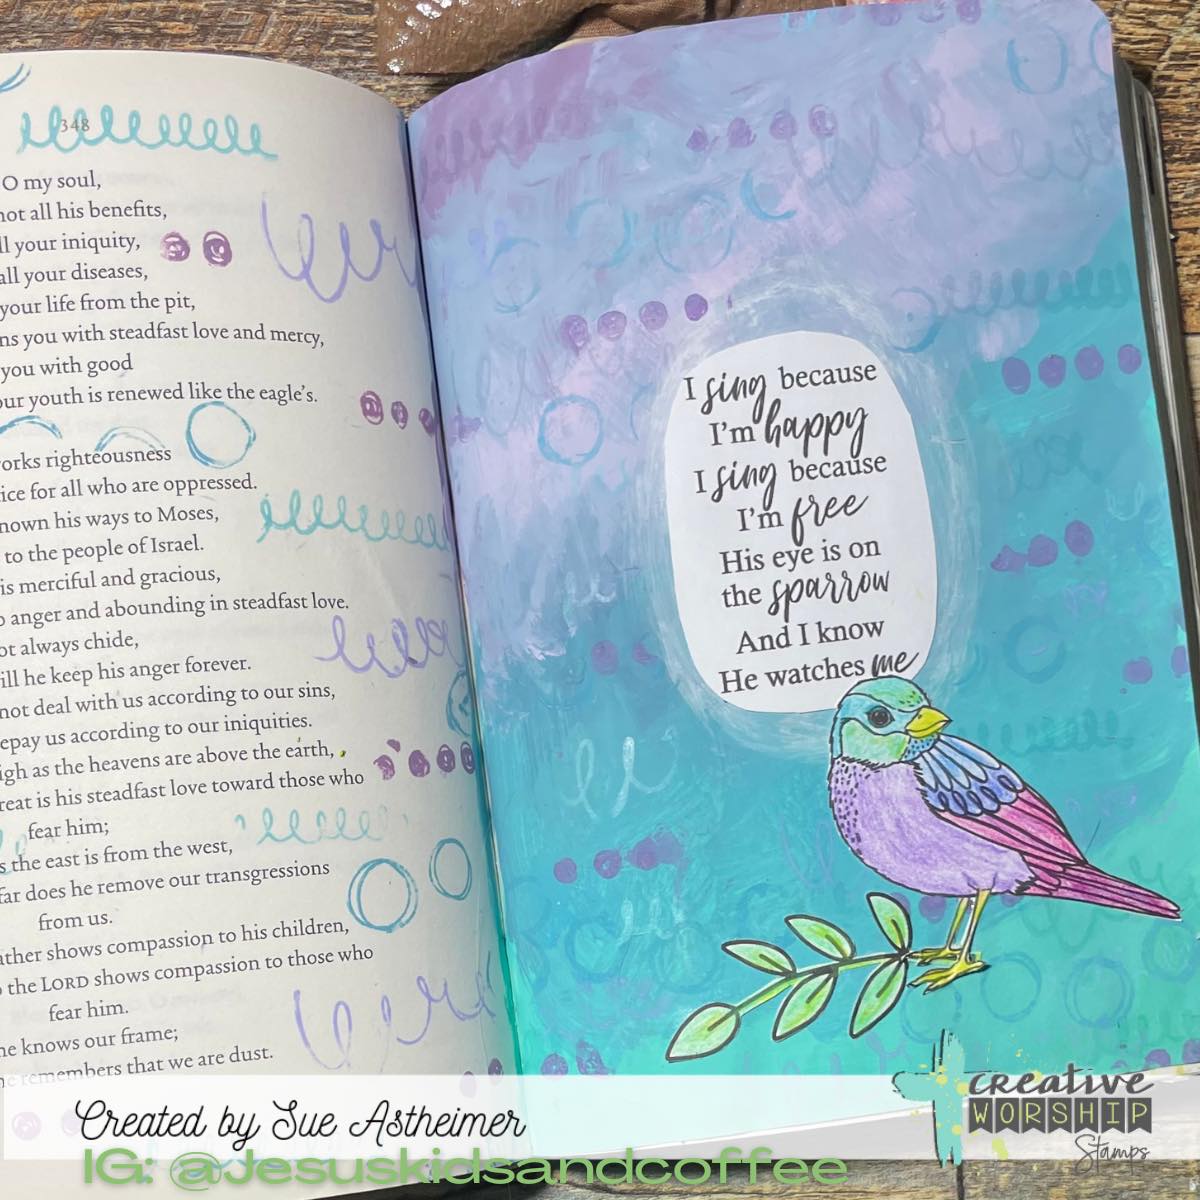 348
O my soul,
not all his benefits,
your iniquity,
all your diseases,
your life from the pit,
you with steadfast love and mercy,
you with good
youth is renewed like the eagle's.
righteousness
for all who are oppressed.
his ways to Moses,
to the people of Israel.
is merciful and gracious,
anger and abounding in steadfast love.
always chide,
he keep his anger forever.
not deal with us according to our sins,
us according to our iniquities.
as the heavens are above the earth,
is his steadfast love toward those who
fear him;
the east is from the west,
far does he remove our transgressions
from us.
shows compassion to his children,
the LORD shows compassion to those who
fear him.
he knows our frame;
remembers that we are dust.
I sing because
I'm happy
I sing because
I'm free
His eye is on
the sparrow
And I know
He watches me
Created by Sue Astheimer
IG: @Jesuskidsandcoffee
creative
WORSHIP
Stamps